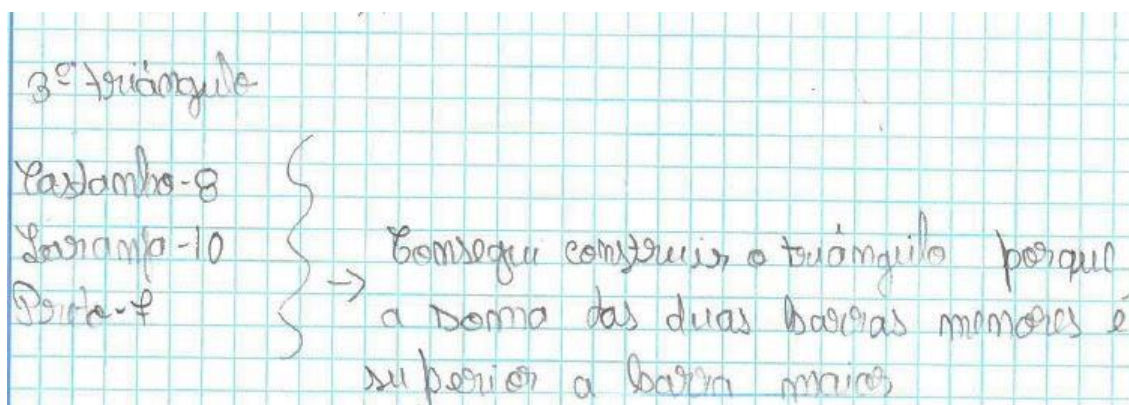 3º triângulo
Castanho-8
Laranja-10
Preto-7
→ Consegui construir o triângulo porque
a soma das duas barras menores é
superior a barra maior